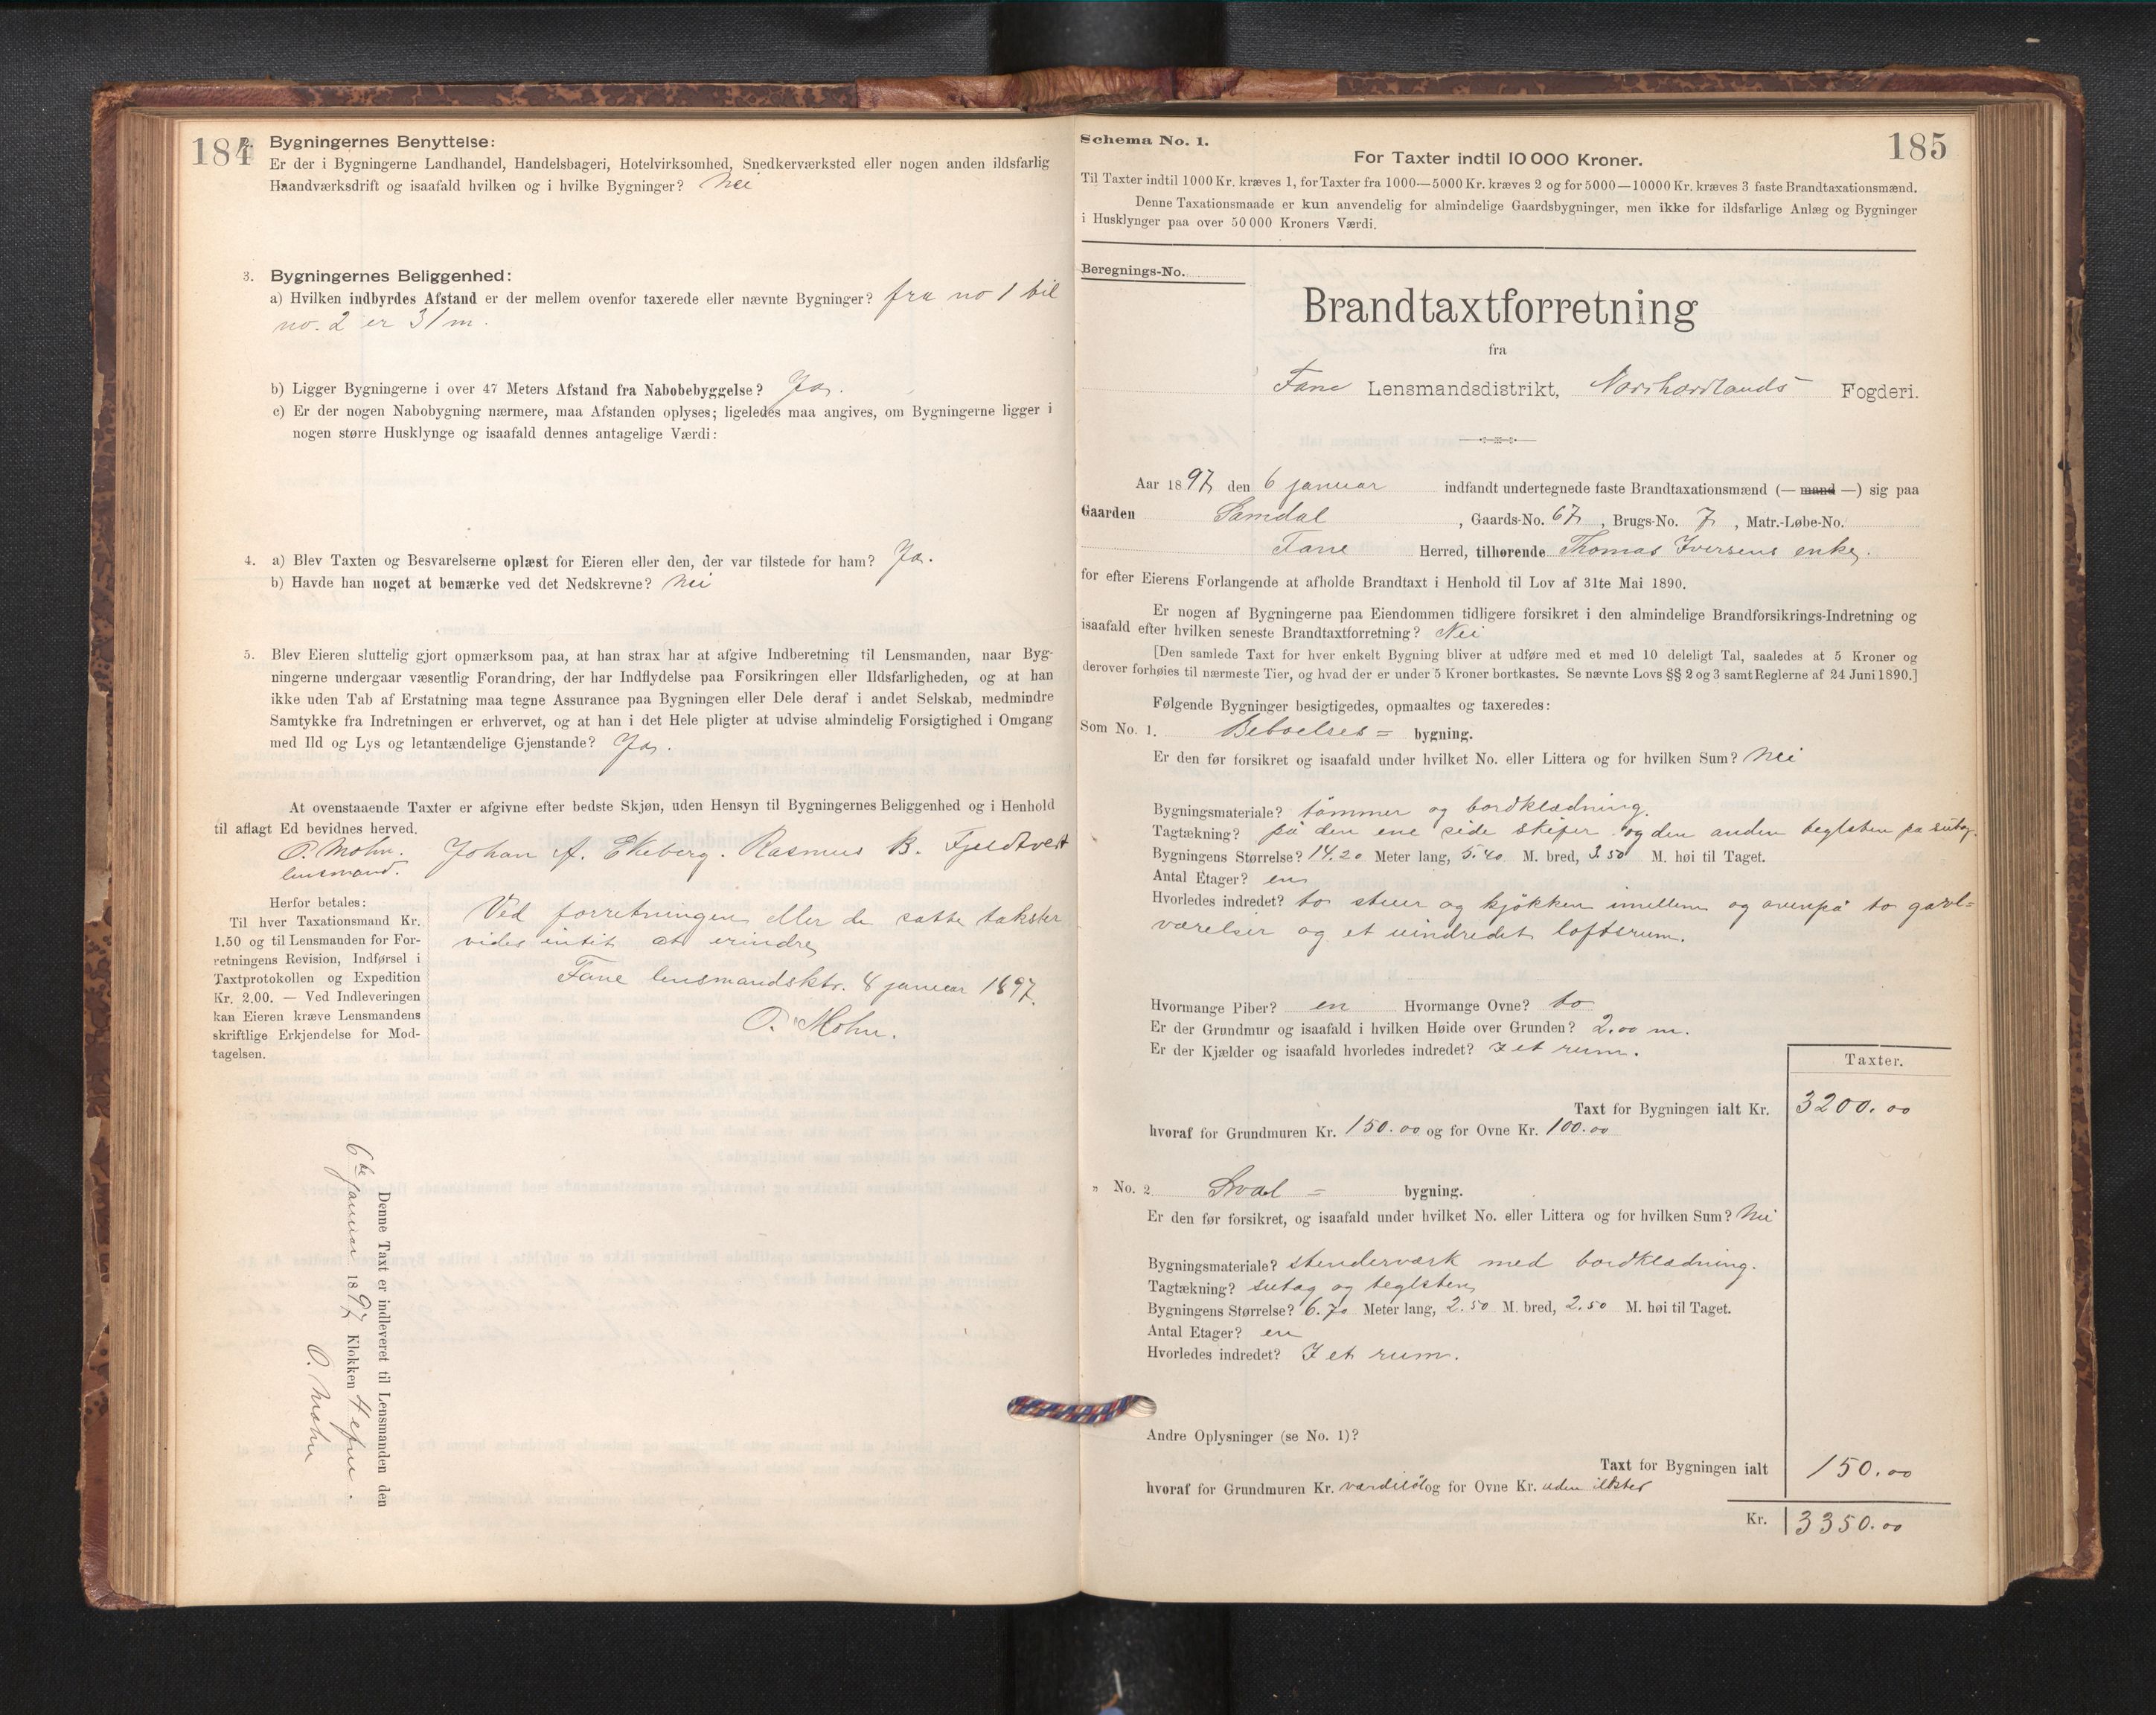 184
2. Bygningernes Benyttelse:
Er der i Bygningerne Landhandel, Handelsbageri, Hotelvirksomhed, Snedkerværksted eller nogen anden ildsfarlig
Haandværksdrift og isaafald hvilken og i hvilke Bygninger? Nei
3. Bygningernes Beliggenhed:
a) Hvilken indbyrdes Afstand er der mellem ovenfor taxerede eller nævnte Bygninger? fra no 1 til
no. 2 er 31 m.
b) Ligger Bygningerne i over 47 Meters Afstand fra Nabobebyggelse? Ja.
c) Er der nogen Nabobygning nærmere, maa Afstanden oplyses; ligeledes maa angives, om Bygningerne ligger i
nogen større Husklynge og isaafald dennes antagelige Værdi:
4. a) Blev Taxten og Besvarelserne oplæst for Eieren eller den, der var tilstede for ham? Ja.
b) Havde han noget at bemærke ved det Nedskrevne? Nei
5. Blev Eieren sluttelig gjort opmærksom paa, at han strax har at afgive Indberetning til Lensmanden, naar Byg-
ningerne undergaar væsentlig Forandring, der har Indflydelse paa Forsikringen eller Ildsfarligheden, og at han
ikke uden Tab af Erstatning maa tegne Assurance paa Bygningen eller Dele deraf i andet Selskab, medmindre
Samtykke fra Indretningen er erhvervet, og at han i det Hele pligter at udvise almindelig Forsigtighed i Omgang
med Ild og Lys og letantændelige Gjenstande? Ja.
At ovenstaaende Taxter er afgivne efter bedste Skjøn, uden Hensyn til Bygningernes Beliggenhed og i Henhold
til aflagt Ed bevidnes herved.
O. Mohn. Johan A. Ekeberg. Rasmus B. Fjeldtvedt
lensmand.
Herfor betales:
Til hver Taxationsmand Kr.
1.50 og til Lensmanden for For-
retningens Revision, Indførsel i
Taxtprotokollen og Expedition
Kr. 2.00. — Ved Indleveringen
kan Eieren kræve Lensmandens
skriftlige Erkjendelse for Mod-
tagelsen.
Ved forretningen eller de satte takster
vides intit at erindre
Fane lensmandsktr. 8 januar 1897.
O. Mohn.
Denne Taxt er indleveret til Lensmanden den
6te januar 1897 Klokken 4 efm.
O. Mohn
185
Schema No. 1.
For Taxter indtil 10 000 Kroner.
Til Taxter indtil 1000 Kr. kræves 1, for Taxter fra 1000—5000 Kr. kræves 2 og for 5000—10000 Kr. kræves 3 faste Brandtaxationsmænd.
Denne Taxationsmaade er kun anvendelig for almindelige Gaardsbygninger, men ikke for ildsfarlige Anlæg og Bygninger
i Husklynger paa over 50 000 Kroners Værdi.
Beregnings-No.
Brandtaxtforretning
fra
Fane Lensmandsdistrikt, Nordhordlands Fogderi.
Aar 1897 den 6 januar indfandt undertegnede faste Brandtaxationsmænd (— mand —) sig paa
Gaarden Samdal, Gaards-No. 67, Brugs-No. 7, Matr.-Løbe-No.
Fane Herred, tilhørende Thomas Iversens enke.
for efter Eierens Forlangende at afholde Brandtaxt i Henhold til Lov af 31te Mai 1890.
Er nogen af Bygningerne paa Eiendommen tidligere forsikret i den almindelige Brandforsikrings-Indretning og
isaafald efter hvilken seneste Brandtaxtforretning? Nei
[Den samlede Taxt for hver enkelt Bygning bliver at udføre med et med 10 deleligt Tal, saaledes at 5 Kroner og
derover forhøies til nærmeste Tier, og hvad der er under 5 Kroner bortkastes. Se nævnte Lovs §§ 2 og 3 samt Reglerne af 24 Juni 1890.]
Følgende Bygninger besigtigedes, opmaaltes og taxeredes:
Som No. 1. Beboelses= bygning.
Er den før forsikret og isaafald under hvilket No. eller Littera og for hvilken Sum? Nei
Bygningsmateriale? tømmer og bordklædning.
Tagtækning? på den ene side skifer og den anden teglsten på sutag.
Bygningens Størrelse? 14.20 Meter lang, 5.40 M. bred, 3.50 M. høi til Taget.
Antal Etager? en
Hvorledes indredet? to stuer og kjøkken imellem og ovenpå to gavl=
værelser og et uindredet loftsrum.
Hvormange Piber? en Hvormange Ovne? to
Er der Grundmur og isaafald i hvilken Høide over Grunden? 2.00 m.
Er der Kjælder og isaafald hvorledes indredet? I et rum.
Taxter.
Taxt for Bygningen ialt Kr. 3200.00
hvoraf for Grundmuren Kr. 150.00 og for Ovne Kr. 100.00
" No. 2 Sval= bygning.
Er den før forsikret, og isaafald under hvilket No. eller Littera og for hvilken Sum? Nei
Bygningsmateriale? stenderværk med bordklædning.
Tagtækning? sutag og teglsten
Bygningens Størrelse? 6.70 Meter lang, 2.50 M. bred, 2.50 M. høi til Taget.
Antal Etager? en
Hvorledes indredet? I et rum.
Andre Oplysninger (se No. 1)?
Taxt for Bygningen ialt 150.00
hvoraf for Grundmuren Kr. værdiløs og for Ovne Kr. uden ildsted
Kr. 3350.00